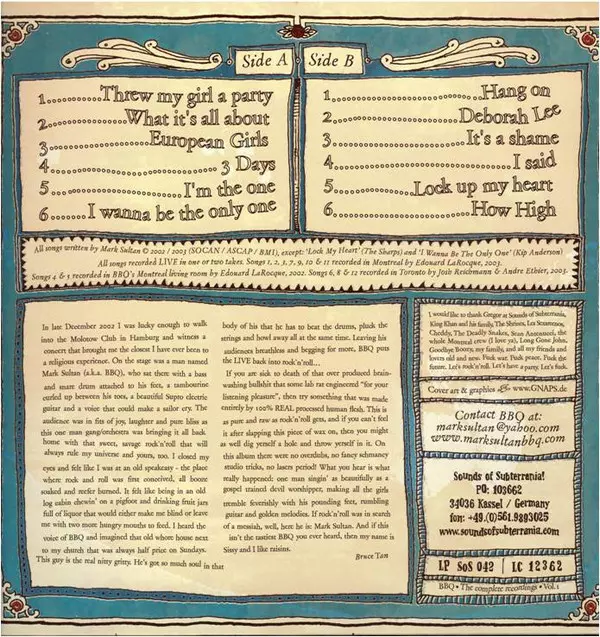 Side A
1. Threw my girl a party
2. What it's all about
3. European Girls
4. 3 Days
5. I'm the one
6. I wanna be the only one
Side B
1. Hang on
2. Deborah Lee
3. It's a shame
4. I said
5. Lock up my heart
6. How High
All songs written by Mark Sultan © 2002 / 2003 (SOCAN / ASCAP / BMI), except: 'Lock My Heart' (The Sharps) and 'I Wanna Be The Only One' (Kip Anderson)
All songs recorded LIVE in one or two takes. Songs 1, 2, 3, 7, 9, 10 & 11 recorded in Montreal by Edouard LaRocque, 2003.
Songs 4 & 5 recorded in BBQ's Montreal living room by Edouard LaRocque, 2002. Songs 6, 8 & 12 recorded in Toronto by Josh Reichmann & Andre Ethier, 2003.
In late December 2002 I was lucky enough to walk
into the Molotow Club in Hamburg and witness a
concert that brought me the closest I have ever been to
a religious experience. On the stage was a man named
Mark Sultan (a.k.a. BBQ), who sat them with a bass
and snare drum attached to his feet, a tambourine
curled up between his toes, a beautiful Supro electric
guitar and a voice that could make a sailor cry. The
audience was in fits of joy, laughter and pure bliss as
this one man gang/orchestra was bringing it all back
home with that sweet, savage rock'n'roll that will
always rule my universe and yours, too. I closed my
eyes and felt like I was at an old speakeasy - the place
where rock and roll was first conceived, all booze
soaked and reefer burned. It felt like being in an old
log cabin chewin' on a pigfoot and drinking fruit jars
full of liquor that would either make me blind or leave
me with two more hungry mouths to feed. I heard the
voice of BBQ and imagined that old whore house next
to my church that was always half price on Sundays.
This guy is the real nitty gritty. He's got so much soul in that
body of his that he has to beat the drums, pluck the
strings and howl away all at the same time. Leaving his
audiences breathless and begging for more, BBQ puts
the LIVE back into rock'n'roll...
If you are sick to death of that over produced brain-
washing bullshit that some lab rat engineered "for your
listening pleasure", then try something that was made
entirely by 100% REAL processed human flesh. This is
as pure and raw as rock'n'roll gets, and if you can't feel
it after slapping this piece of wax on, then you might
as well dig yerself a hole and throw yerself in it. On
this album there were no overdubs, no fancy schmancy
studio tricks, no lasers period! What you hear is what
really happened; one man singin' as beautifully as a
gospel trained devil worshipper, making all the girls
tremble feverishly with his pounding feet, rumbling
guitar and golden melodies. If rock'n'roll was in search
of a messiah, well, here he is: Mark Sultan. And if this
isn't the tastiest BBQ you ever heard, then my name is
Sissy and I like raisins.
Bruce Tan
I would like to thank Gregor at Sounds of Subterrania,
King Khan and his family, The Shrines, Les Sexareenos,
Choddy, The Deadly Snakes, Sean Annotated, the
whole Montreal crew (I love ya), Long Gone John,
Goodbye Boozy, my family, and all my friends and
lovers old and new. Fuck war. Fuck peace. Fuck the
future. Let's rock'n'roll. Let's have a party. Let's fuck.
Cover art & graphics www.GNAPS.de
Contact BBQ at:
marksultan@yahoo.com
www.marksultanbbq.com
Sounds of Subterrania!
PO: 103662
34036 Kassel / Germany
fon: +49.(0)561.9893025
www.soundsofsubterrania.com
LP SoS 042 LC 12362
BBQ • The complete recordings • Vol. 1